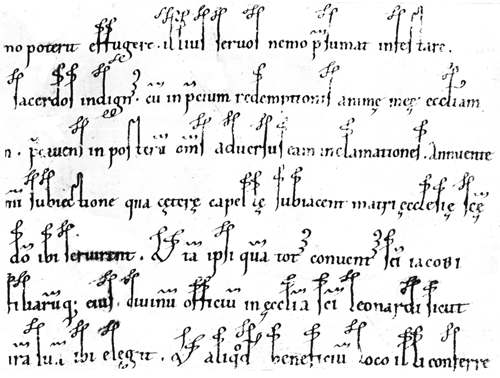 no poterit effugere. illius servos nemo p̄sumat infestare.
sacerdos indign⁹. cū in p̄cium redemptionis animę meę eccl̄iam
in posterū om̄s adversus eam inclamationes. Annuente
subiectione qua cęterę capellę subiacent matri ęcclesię scę
dn̄o ibi serviunt. ita ipsi quā tot⁹ convent⁹ sc̄i iacobi
filiarūq; eius. divinū officiū in ęcclia sc̄i leonardi sicut
ira sua ibi elegit. aliqd̄ beneficiū loco illi conferre